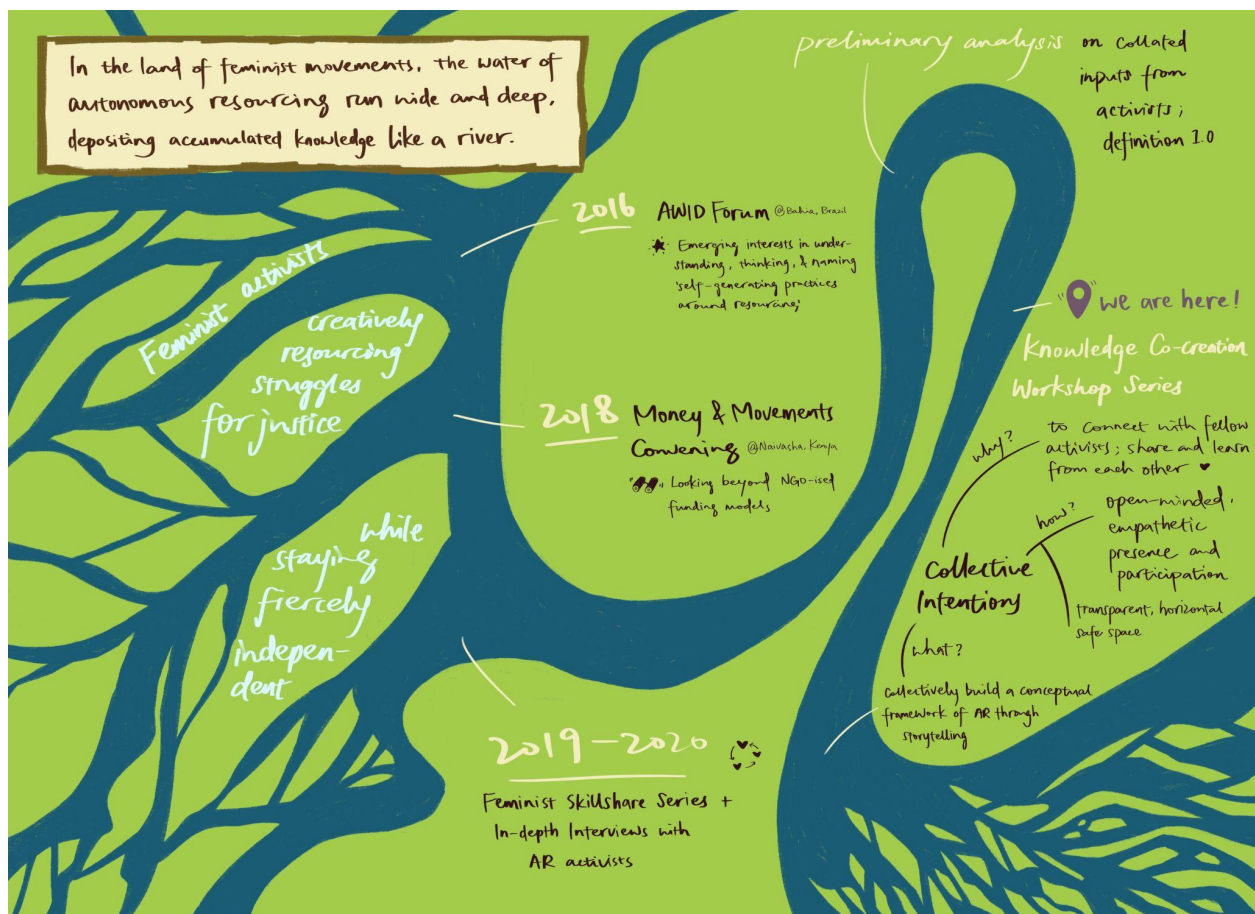 In the land of feminist movements, the water of
autonomous resourcing run wide and deep,
depositing accumulated knowledge like a river.
Feminist activists
creatively
resourcing
struggles
for justice
while
staying
fiercely
indepen-
dent
2016 AWID Forum @Bahia, Brazil
Emerging interests in under-
standing, thinking, & naming
'self-generating practices
around resourcing'
2018 Money & Movements
Convening @Naivacha, Kenya
Looking beyond NGO-ised
funding models
2019-2020
Feminist Skillshare Series +
In-depth Interviews with
AR activists
preliminary analysis on collated
inputs from
activists;
definition 1.0
we are here!
Knowledge Co-creation
Workshop Series
Collective
Intentions
why?
to connect with fellow
activists; share and learn
from each other
how?
open-minded,
empathetic
presence and
participation
transparent, horizontal
safe space
what?
collectively build a conceptual
framework of AR through
storytelling